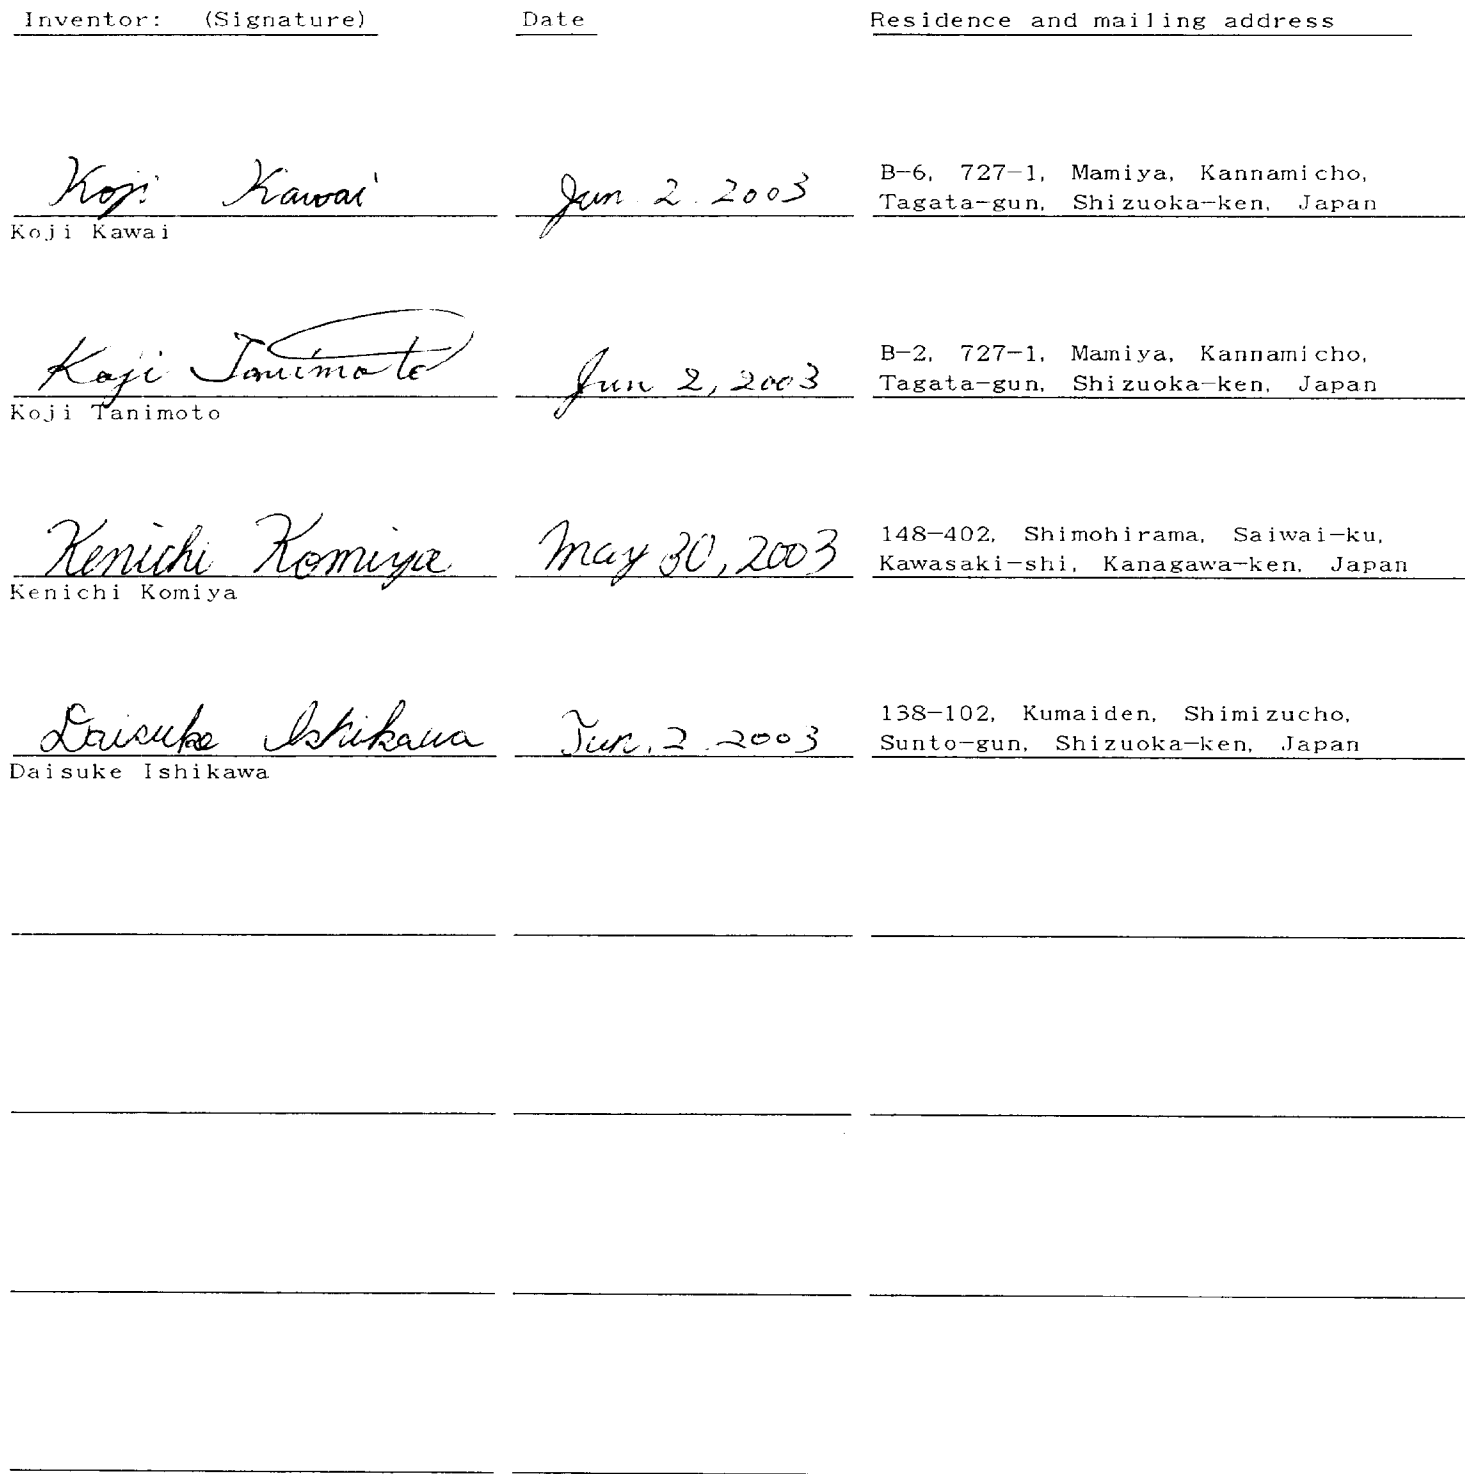 Inventor: (Signature) Date Residence and mailing address
Koji Kawai Jun 2. 2003 B-6, 727-1, Mamiya, Kannamicho,
Tagata-gun, Shizuoka-ken, Japan
Koji Kawai
Koji Tanimoto Jun 2, 2003 B-2, 727-1, Mamiya, Kannamicho,
Tagata-gun, Shizuoka-ken, Japan
Koji Tanimoto
Kenichi Komiya May 30, 2003 148-402, Shimohirama, Saiwai-ku,
Kawasaki-shi, Kanagawa-ken, Japan
Kenichi Komiya
Daisuke Ishikawa Jun. 2. 2003 138-102, Kumaiden, Shimizucho,
Sunto-gun, Shizuoka-ken, Japan
Daisuke Ishikawa